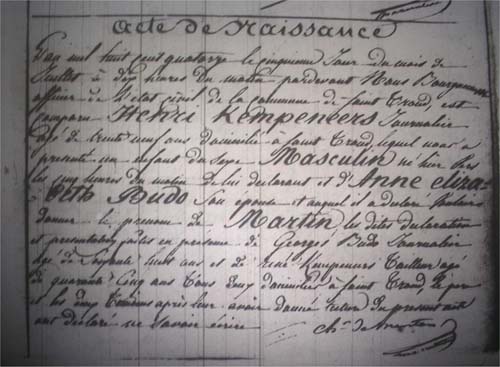 Acte de Naissance
L'an mil huit cent quatorze le cinquieme Jour du mois de
Juillet à dix heures du matin pardevant Nous Bourguemaitre
officier de L'etat civil de la commune de Saint Trond, est
comparu Henri Kempeneers Journalier
agé de trente neuf ans domicilié à Saint Trond lequel nous a
presenté un enfant du Sexe Masculin né hier vers
les cinq heures du matin de lui declarant et d'Anne eliza-
beth Budo Son epouse et auquel il a declaré vouloir
donner le prenom de Martin les dites declaration
et presentation faites en presence de Georges Budo Journalier
agé de Soixante huit ans et de René Kempeneers Tailleur agé
de quarante Cinq ans Tous deux domiciliés à Saint Trond, le pere
et les deux Temoins après leur avoir donné lecture Du present acte
ont declaré ne Savoir écrire